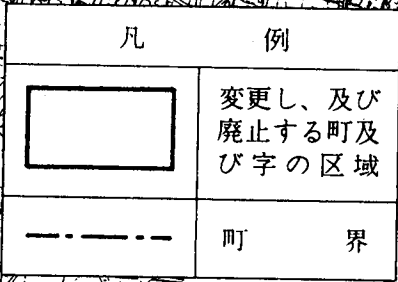 凡例
変更し、及び
廃止する町及
び字の区域
町界